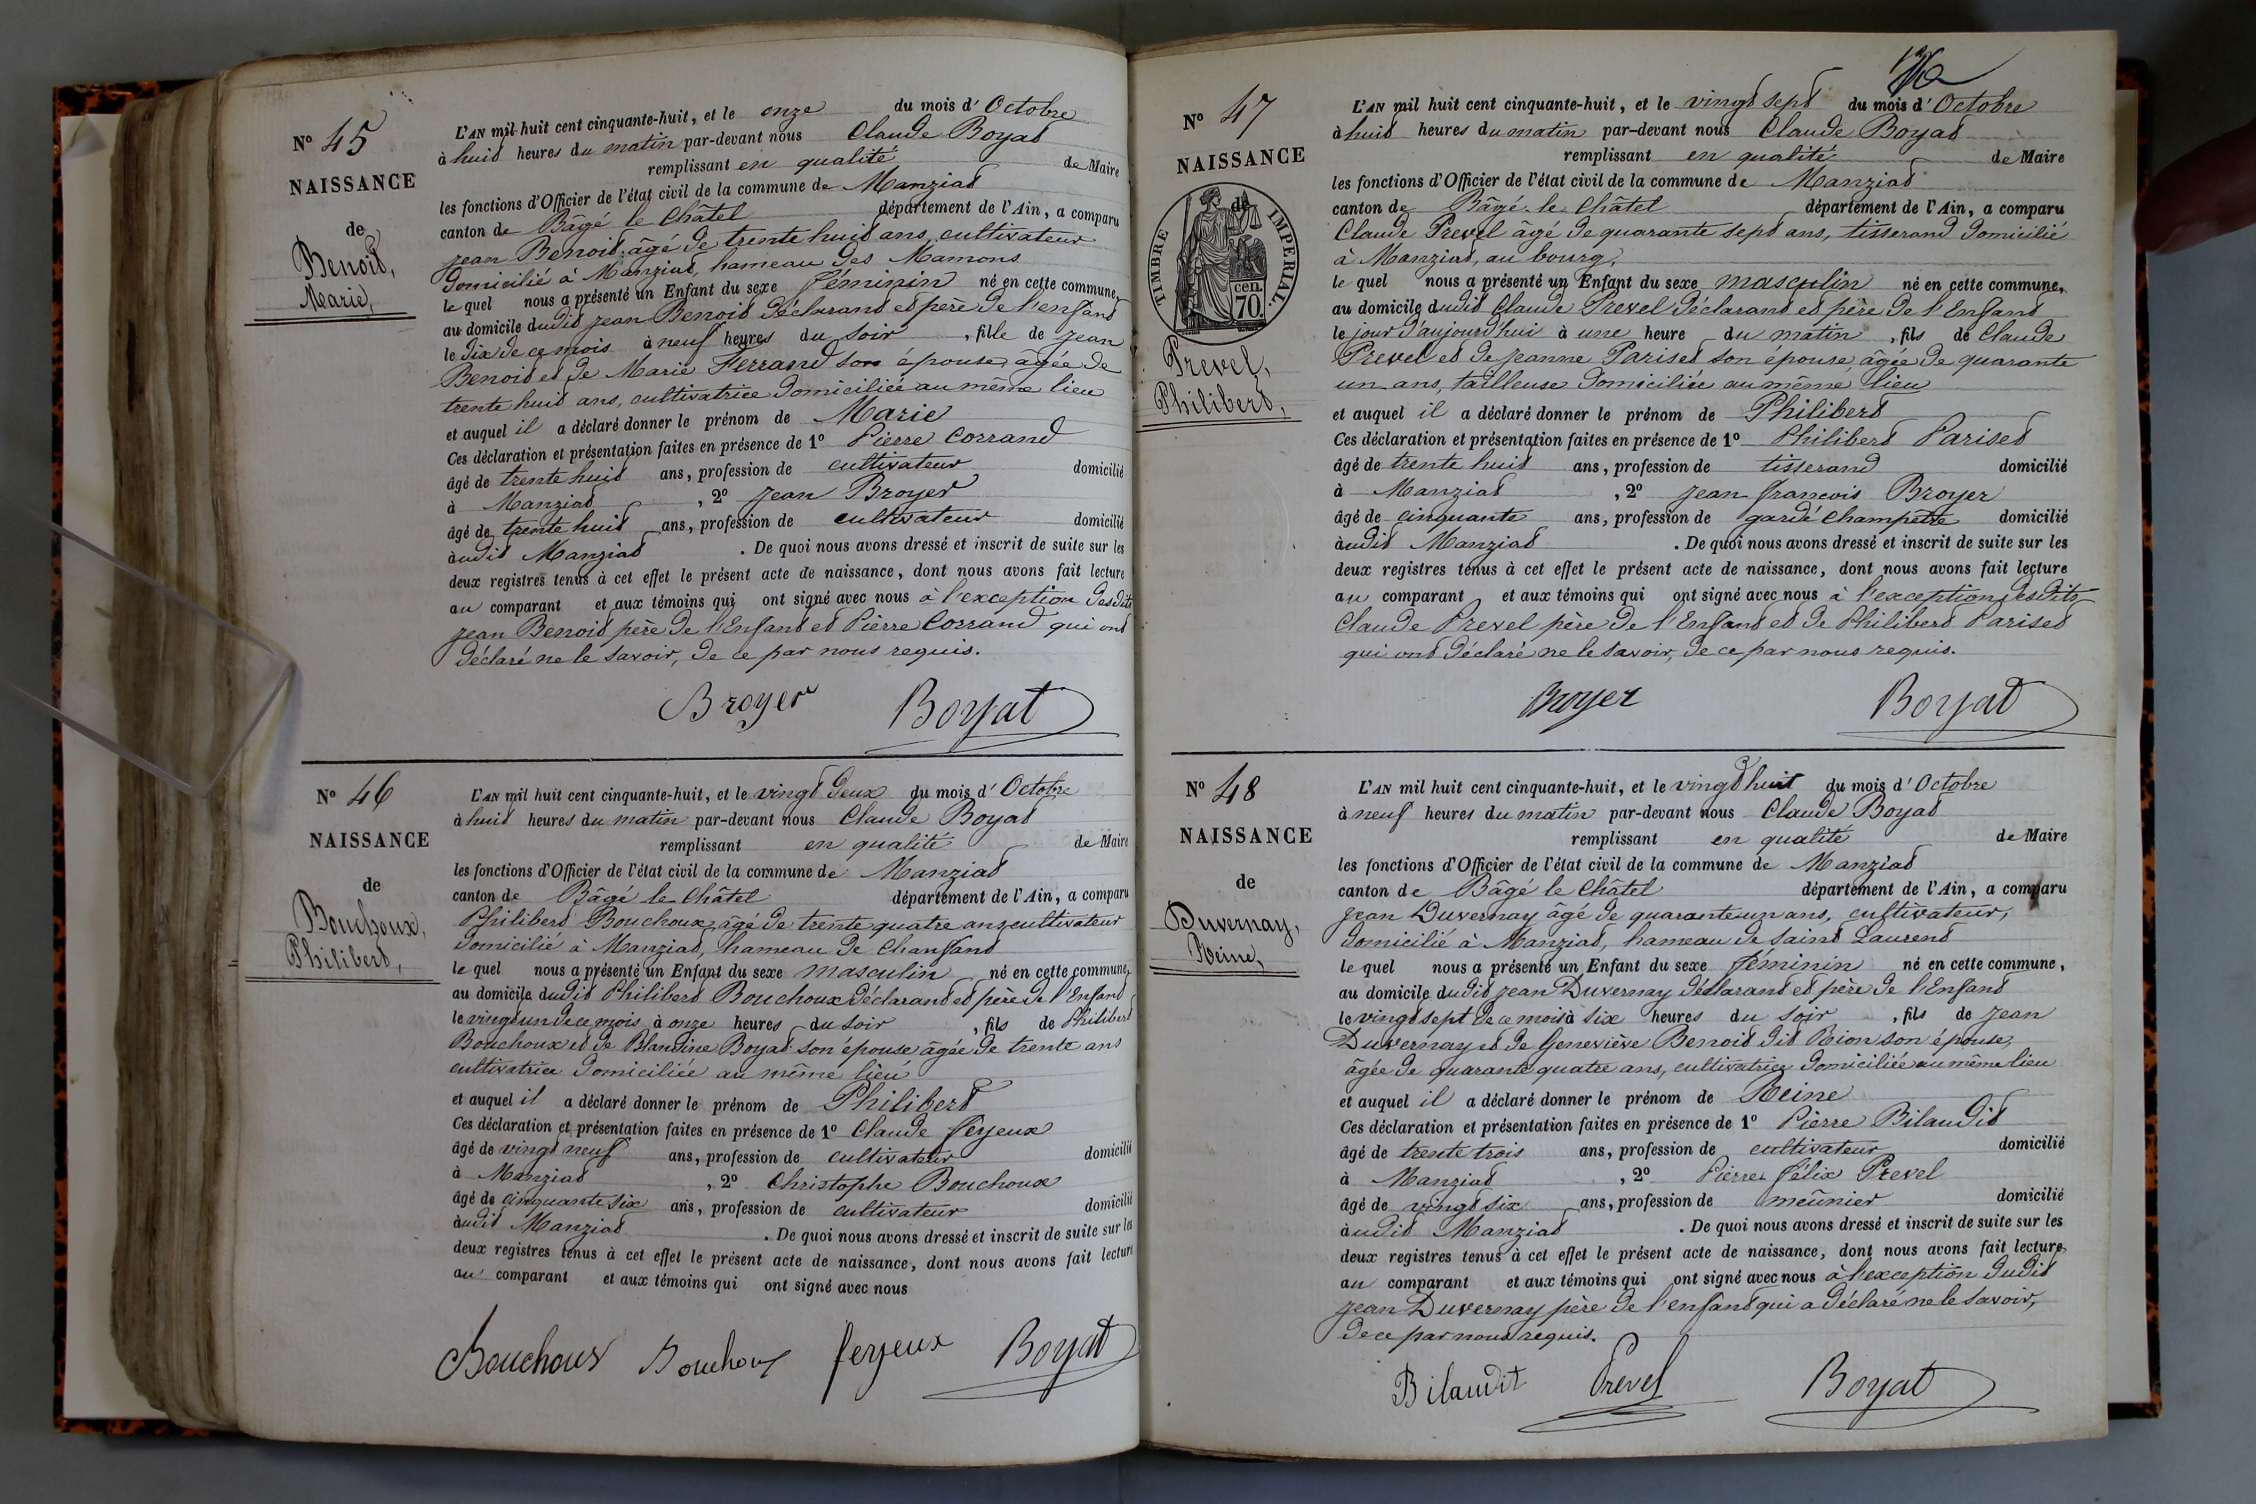 N° 45
NAISSANCE
de
Benoit,
Marie,
L'AN mil huit cent cinquante-huit, et le onze du mois d' Octobre
à huit heures du matin par-devant nous Claude Boyat
remplissant en qualité de Maire
les fonctions d'Officier de l'état civil de la commune de Manziat
canton de Bâgé le Châtel département de l'Ain, a comparu
Jean Benoit, âgé de trente huit ans, cultivateur
domicilié à Manziat, hameau des Mamons
le quel nous a présenté un Enfant du sexe féminin né en cette commune,
au domicile dudit Jean Benoit déclarant et père de l'enfant
le dix de ce mois à neuf heures du soir , fille de Jean
Benoit et de Marie Ferrand son épouse, âgée de
trente huit ans, cultivatrice domiciliée au même lieu
et auquel il a déclaré donner le prénom de Marie
Ces déclaration et présentation faites en présence de 1° Pierre Corrand
âgé de trente huit ans, profession de cultivateur domicilié
à Manziat , 2° Jean Broyer
âgé de trente huit ans, profession de cultivateur domicilié
audit Manziat . De quoi nous avons dressé et inscrit de suite sur les
deux registres tenus à cet effet le présent acte de naissance, dont nous avons fait lecture
au comparant et aux témoins qui ont signé avec nous à l'exception desdits
Jean Benoit père de l'Enfant et Pierre Corrand qui ont
déclaré ne le savoir, de ce par nous requis.
Broyer Boyat
N° 46
NAISSANCE
de
Bouchoux,
Philibert,
L'AN mil huit cent cinquante-huit, et le vingt deux du mois d' Octobre
à huit heures du matin par-devant nous Claude Boyat
remplissant en qualité de Maire
les fonctions d'Officier de l'état civil de la commune de Manziat
canton de Bâgé le Châtel département de l'Ain, a comparu
Philibert Bouchoux, âgé de trente quatre ans, cultivateur
domicilié à Manziat, hameau de Chanfant
le quel nous a présenté un Enfant du sexe masculin né en cette commune,
au domicile dudit Philibert Bouchoux déclarant et père de l'Enfant
le vingt un de ce mois à onze heures du soir , fils de Philibert
Bouchoux et de Blandine Boyat son épouse âgée de trente ans
cultivatrice domiciliée au même lieu
et auquel il a déclaré donner le prénom de Philibert
Ces déclaration et présentation faites en présence de 1° Claude Feyeux
âgé de vingt neuf ans, profession de cultivateur domicilié
à Manziat , 2° Christophe Bouchoux
âgé de cinquante six ans, profession de cultivateur domicilié
audit Manziat . De quoi nous avons dressé et inscrit de suite sur les
deux registres tenus à cet effet le présent acte de naissance, dont nous avons fait lecture
au comparant et aux témoins qui ont signé avec nous
Bouchoux Bouchoux feyeux Boyat
N° 47
NAISSANCE
de
TIMBRE IMPERIAL.
cen.
70.
Prevel,
Philibert,
L'AN mil huit cent cinquante-huit, et le vingt sept du mois d' Octobre
à huit heures du matin par-devant nous Claude Boyat
remplissant en qualité de Maire
les fonctions d'Officier de l'état civil de la commune de Manziat
canton de Bâgé le Châtel département de l'Ain, a comparu
Claude Prevel âgé de quarante sept ans, tisserand domicilié
à Manziat, au bourg,
le quel nous a présenté un Enfant du sexe masculin né en cette commune,
au domicile dudit Claude Prevel déclarant et père de l'Enfant
le jour d'aujourd'hui à une heure du matin , fils de Claude
Prevel et de Jeanne Pariset son épouse, âgée de quarante
un ans, tailleuse domiciliée au même lieu
et auquel il a déclaré donner le prénom de Philibert
Ces déclaration et présentation faites en présence de 1° Philibert Pariset
âgé de trente huit ans, profession de tisserand domicilié
à Manziat , 2° Jean françois Broyer
âgé de cinquante ans, profession de garde champêtre domicilié
audit Manziat . De quoi nous avons dressé et inscrit de suite sur les
deux registres tenus à cet effet le présent acte de naissance, dont nous avons fait lecture
au comparant et aux témoins qui ont signé avec nous à l'exception desdits
Claude Prevel père de l'Enfant et de Philibert Pariset
qui ont déclaré ne le savoir, de ce par nous requis.
Broyer Boyat
N° 48
NAISSANCE
de
Duvernay,
Reine,
L'AN mil huit cent cinquante-huit, et le vingt huit du mois d' Octobre
à neuf heures du matin par-devant nous Claude Boyat
remplissant en qualité de Maire
les fonctions d'Officier de l'état civil de la commune de Manziat
canton de Bâgé le Châtel département de l'Ain, a comparu
Jean Duvernay âgé de quarante un ans, cultivateur,
domicilié à Manziat, hameau de Saint Laurent
le quel nous a présenté un Enfant du sexe féminin né en cette commune,
au domicile dudit Jean Duvernay déclarant et père de l'Enfant
le vingt sept de ce mois à six heures du soir , fils de Jean
Duvernay et de Geneviève Benoit dit Rion son épouse,
âgée de quarante quatre ans, cultivatrice domiciliée au même lieu
et auquel il a déclaré donner le prénom de Reine
Ces déclaration et présentation faites en présence de 1° Pierre Bilaudit
âgé de trente trois ans, profession de cultivateur domicilié
à Manziat , 2° Pierre félix Prevel
âgé de vingt six ans, profession de meunier domicilié
audit Manziat . De quoi nous avons dressé et inscrit de suite sur les
deux registres tenus à cet effet le présent acte de naissance, dont nous avons fait lecture
au comparant et aux témoins qui ont signé avec nous à l'exception dudit
Jean Duvernay père de l'enfant qui a déclaré ne le savoir,
de ce par nous requis.
Bilaudit Prevel Boyat